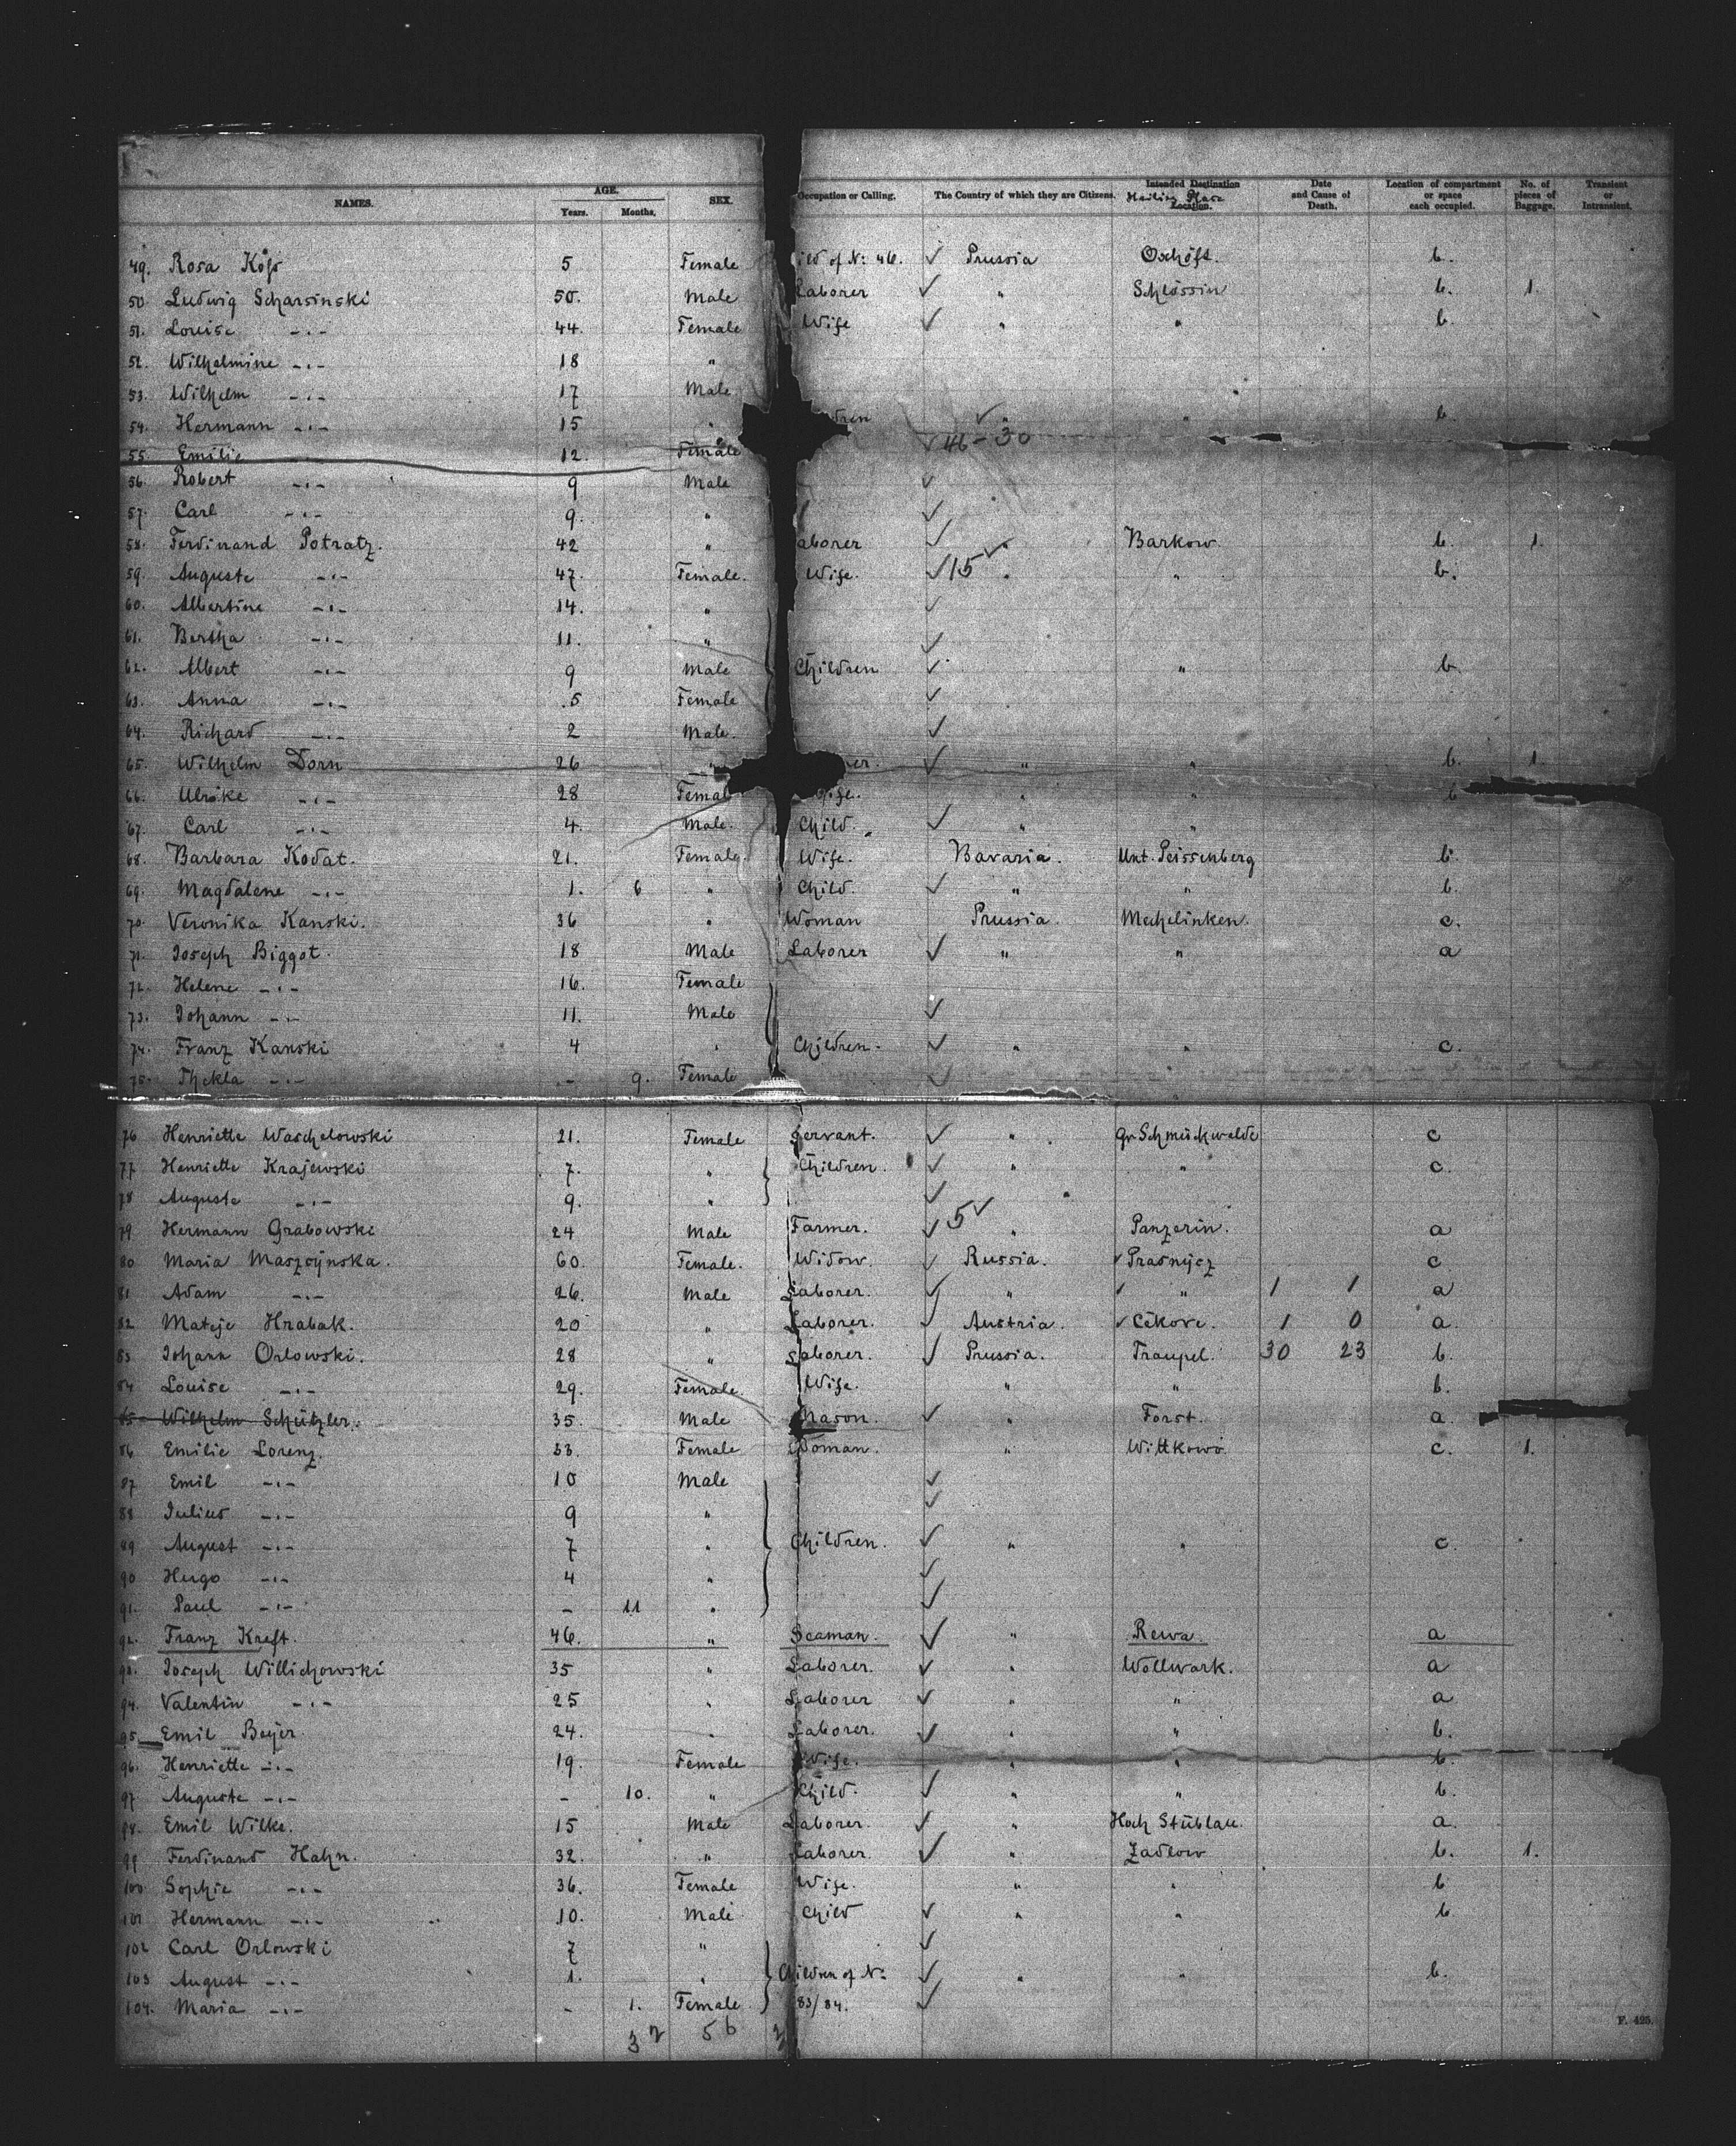 NAMES. AGE. Years. Months. SEX. Occupation or Calling. The Country of which they are Citizens. Intended Destination Location. Date and Cause of Death. Location of compartment or space each occupied. No. of pieces of Baggage. Transient or Intransient.
49. Rosa 5 Female ild of N: 46. ✓ Prussia Oxhöft. b.
50. Ludwig Scharsinski 50. Male Laborer ✓ " Schlössin b. 1.
51. Louise -.- 44. Female Wife ✓ " " b.
52. Wilhelmine -.- 18 "
53. Wilhelm -.- 17 Male
54. Hermann -.- 15 " dren ✓ " " b
55. Emilie 12. Female ✓ 46-30
56. Robert -.- 9 Male ✓
57. Carl -.- 9. " ✓
58. Ferdinand Potratz. 42 " aborer ✓ " Barkow. b. 1.
59. Auguste -.- 47. Female. Wife. ✓ 15 ✓ " " b.
60. Albertine -.- 14. " ✓
61. Bertha -.- 11. " ✓
62. Albert -.- 9 Male Children ✓ " b.
63. Anna -.- 5 Female ✓
64. Richard -.- 2 Male. ✓
65. Wilhelm Dorn 26 " er. ✓ " " b. 1.
66. Ulrike -.- 28 Femal Wife. " " b
67. Carl -.- 4. Male. Child. ✓ " "
68. Barbara Kodat. 21. Female. Wife. Bavaria. Unt. Peissenberg b.
69. Magdalene -.- 1. 6 " Child. ✓ " " b.
70. Veronika Kanski. 36 " Woman Prussia. Mechelinken. c.
71. Joseph Biggot. 18 Male Laborer ✓ " " a
72. Helene -.- 16. Female
73. Johann -.- 11. Male ✓
74. Franz Kanski 4 " Children. ✓ " " c.
75. Thekla -.- - 9. Female ✓
76 Henriette Waschelowski 21. Female Servant. ✓ " Gr Schmückwalde c
77 Henriette Krajewski 7. " Children. ✓ " " c.
78 Auguste -.- 9. " ✓
79 Hermann Grabowski 24 Male Farmer. ✓ 5 ✓ " Panzerin. a
80 Maria Maszcynska. 60. Female. Widow. ✓ Russia. ✓ Prasnysz c
81 Adam -.- 26. Male Laborer. ✓ " ✓ " 1 1 a
82 Mateje Hrabak. 20 " Laborer. ✓ Austria. ✓ Cekove. 1 0 a.
83 Johann Orlowski. 28 " Laborer. ✓ Prussia. Traupel. 30 23 b.
84 Louise -.- 29. Female. Wife. " " b.
85 Wilhelm Schützler. 35. Male Mason. ✓ " Forst. a.
86 Emilie Lorenz. 33. Female Woman. " Wittkowo c. 1.
87 Emil -.- 10 Male ✓
88 Julius -.- 9 " ✓
89 August -.- 7 " Children. ✓ " " c.
90 Hugo -.- 4 " ✓
91. Paul -.- - 11 " ✓
92. Franz Kreft. 46. " Seaman. ✓ " Rewa. a
93. Joseph Willichowski 35 " Laborer. ✓ " Wollwark. a
94. Valentin -.- 25 " Laborer ✓ " " a
95. Emil Beyer. 24. " Laborer. ✓ " " b.
96. Henriette -.- 19. Female Wife. " " b.
97. Auguste -.- - 10. " Child. ✓ " " b.
98. Emil Wilke. 15 Male Laborer. ✓ " Hoch Stüblau. a.
99 Ferdinand Hahn. 32. " Laborer. ✓ " Zadlow b. 1.
100 Sophie -.- 36. Female Wife. " " b
101 Hermann -.- 10. Male Child ✓ " " b
102 Carl Orlowski 7 " ✓
103 August -.- 1. " Children of N: ✓ " " b.
104. Maria -.- - 1. Female 83/84. ✓
56
F. 425.